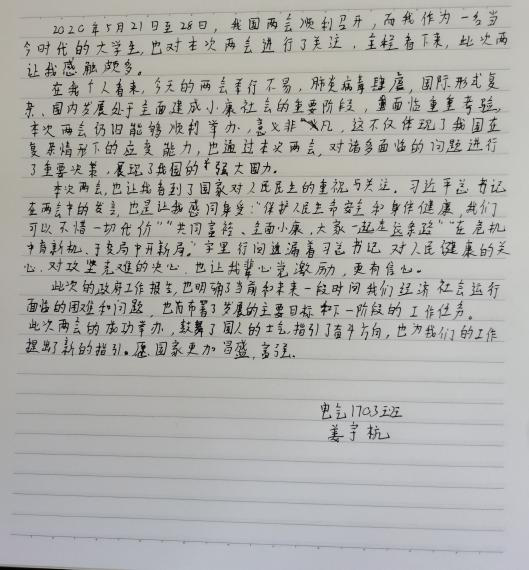 2020年5月21日至28日，我国两会顺利召开，而我作为一名当
今时代的大学生，也对本次两会进行了关注，全程看下来，此次两
让我感触颇多。
在我个人看来，今天的两会举行不易，肺炎病毒肆虐，国际形式复
杂、国内发展处于全面建成小康社会的重要阶段，面临重重考验。
本次两会仍旧能够顺利举办，意义非凡，这不仅体现了我国在
复杂情形下的应变能力，也通过本次两会，对诸多面临的问题进行
了重要决策，展现了我国的强大国力。
本次两会，也让我看到了国家对人民民生的重视与关注。习近平总书记
在两会中的发言，也是让我感同身受："保护人民生命安全和身体健康，我们
可以不惜一切代价""共同富裕、全面小康，大家一起走这条路""在危机
中育新机、于变局中开新局。"字里行间透漏着习总书记对人民健康的关
心，对攻坚克难的决心，也让我辈心觉激励，更有信心。
此次的政府工作报告，也明确了当前和未来一段时间我们经济社会运行
面临的困难和问题，也而布署了发展的主要目标和下一阶段的工作任务。
此次两会的成功举办，鼓舞了国人的士气，指引了奋斗方向，也为我们的工作
提出了新的指引。愿国家更加昌盛，富强。
电气1703班
姜宇杭